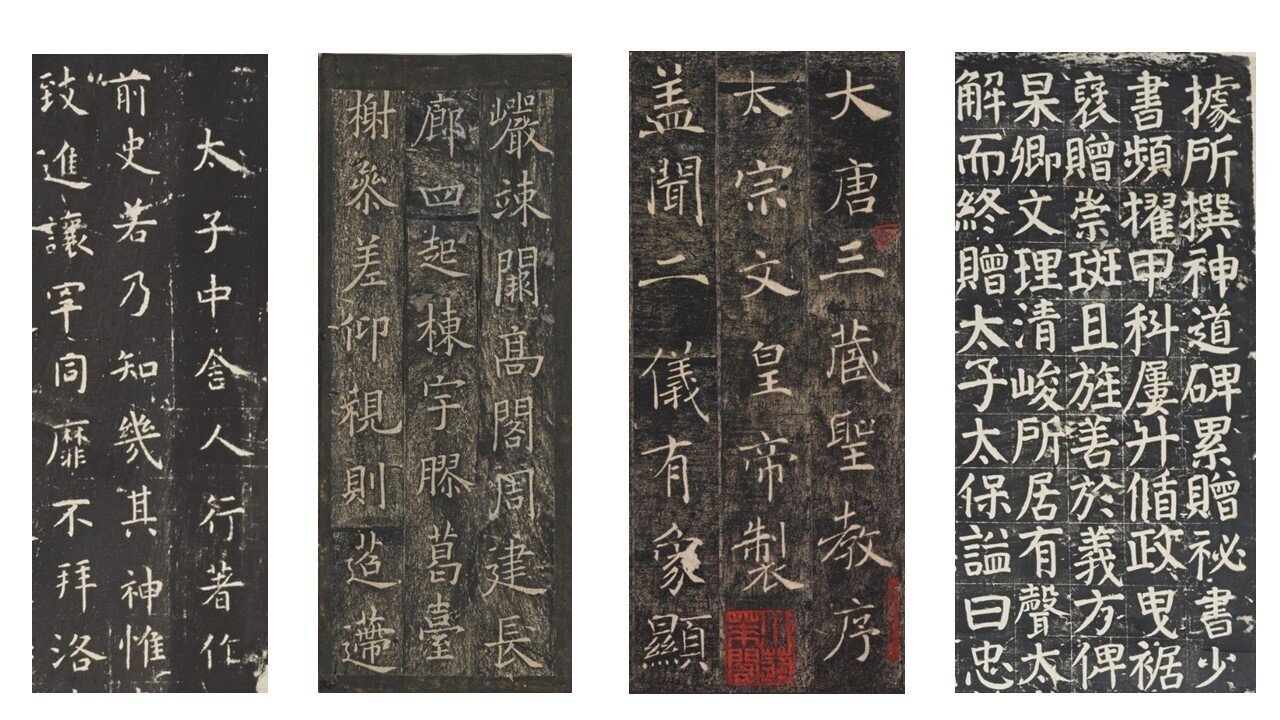 太子中舍人行著作
前史若乃知幾其神惟
致進讓罕同靡不拜洛
巖竦闕高閣周建長
廊四起棟宇膠葛臺
榭參差仰視則迢遰
大唐三藏聖教序
太宗文皇帝製
盖聞二儀有象顯
據所撰神道碑累贈祕書少
書頻擢甲科屢升循政曳裾
裦贈崇班且旌善於義方俾
杲卿文理清峻所居有聲太
解而終贈太子太保謚曰忠